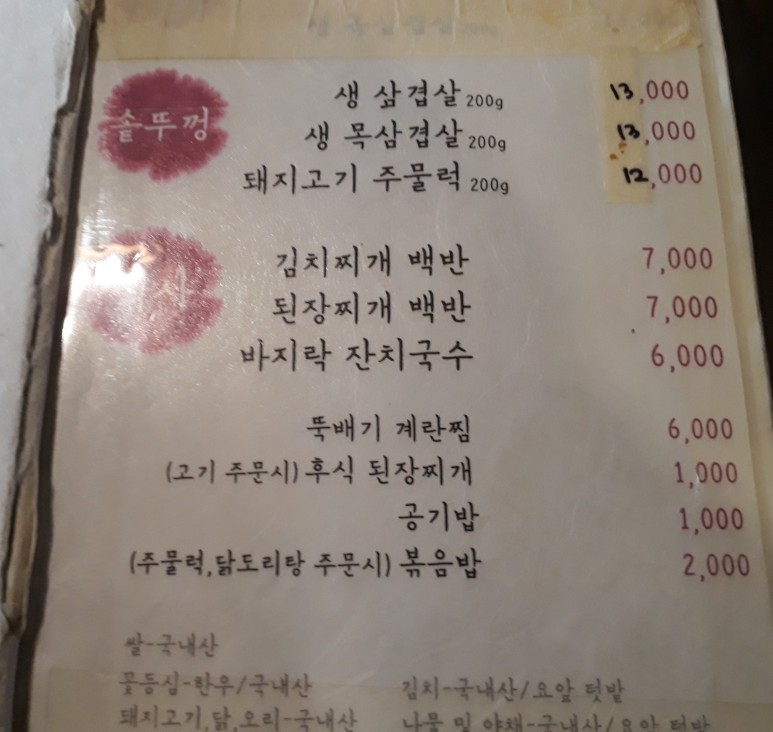 솥뚜껑
생 삼겹살 200g 13,000
생 목삼겹살 200g 13,000
돼지고기 주물럭 200g 12,000
김치찌개 백반 7,000
된장찌개 백반 7,000
바지락 잔치국수 6,000
뚝배기 계란찜 6,000
(고기 주문시) 후식 된장찌개 1,000
공기밥 1,000
(주물럭,닭도리탕 주문시) 볶음밥 2,000
쌀-국내산
꽃등심-한우/국내산 김치-국내산/요앞 텃밭
돼지고기,닭,오리-국내산 나물 및 야채-국내산/요앞 텃밭